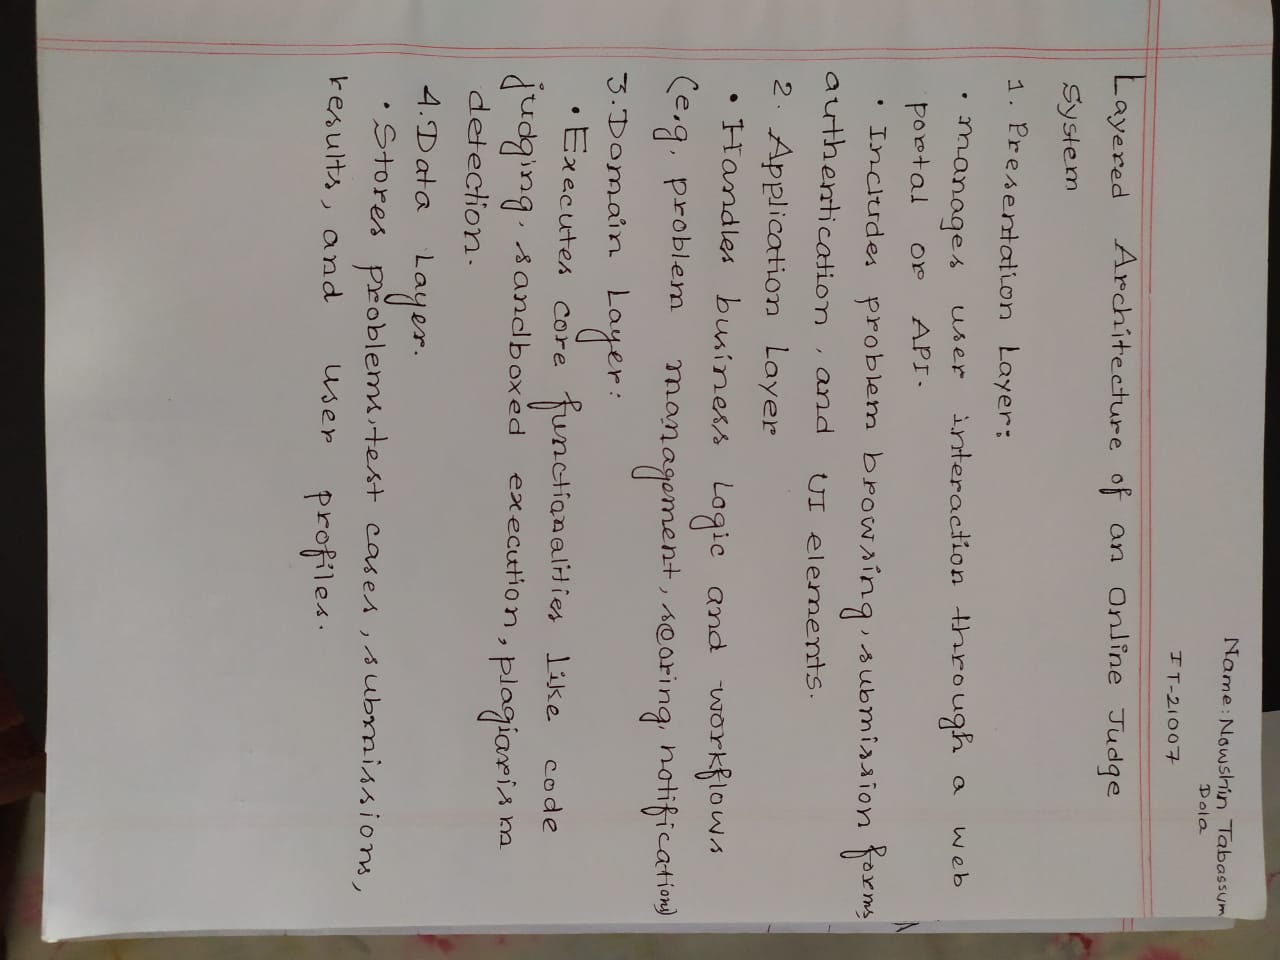 Name: Nowshin Tabassum
Dola
IT-21007
Layered Architecture of an Online Judge
System
1. Presentation Layer:
• manages user interaction through a web
portal or API.
• Includes problem browsing, submission forms,
authentication, and UI elements.
2. Application Layer
• Handles business Logic and workflows
(e.g, problem management, scoring, notifications)
3. Domain Layer:
• Executes core functionalities like code
judging, sandboxed execution, plagiarism
detection.
4. Data Layer.
• Stores problems, test cases, submissions,
results, and user profiles.